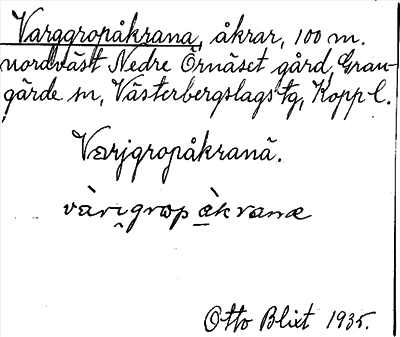 Varggropåkrana, åkrar, 100 m.
nordväst Nedre Örnäset gård, Gran-
gärde sn, Västerbergslags tg, Kopp l.
Varjgropåkranä.
Otto Blixt 1935.